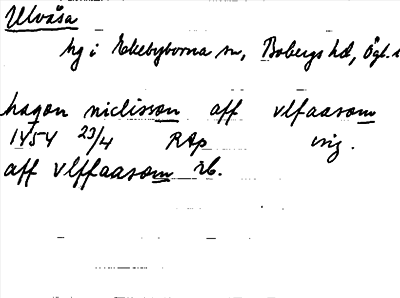 Ulvåsa
hg i Ekebyborna sn, Bobergs hd, Ögl.
haqon niclisson aff vlfaasom
1454 23/4 RAp orig.
aff vlffaasom rb.